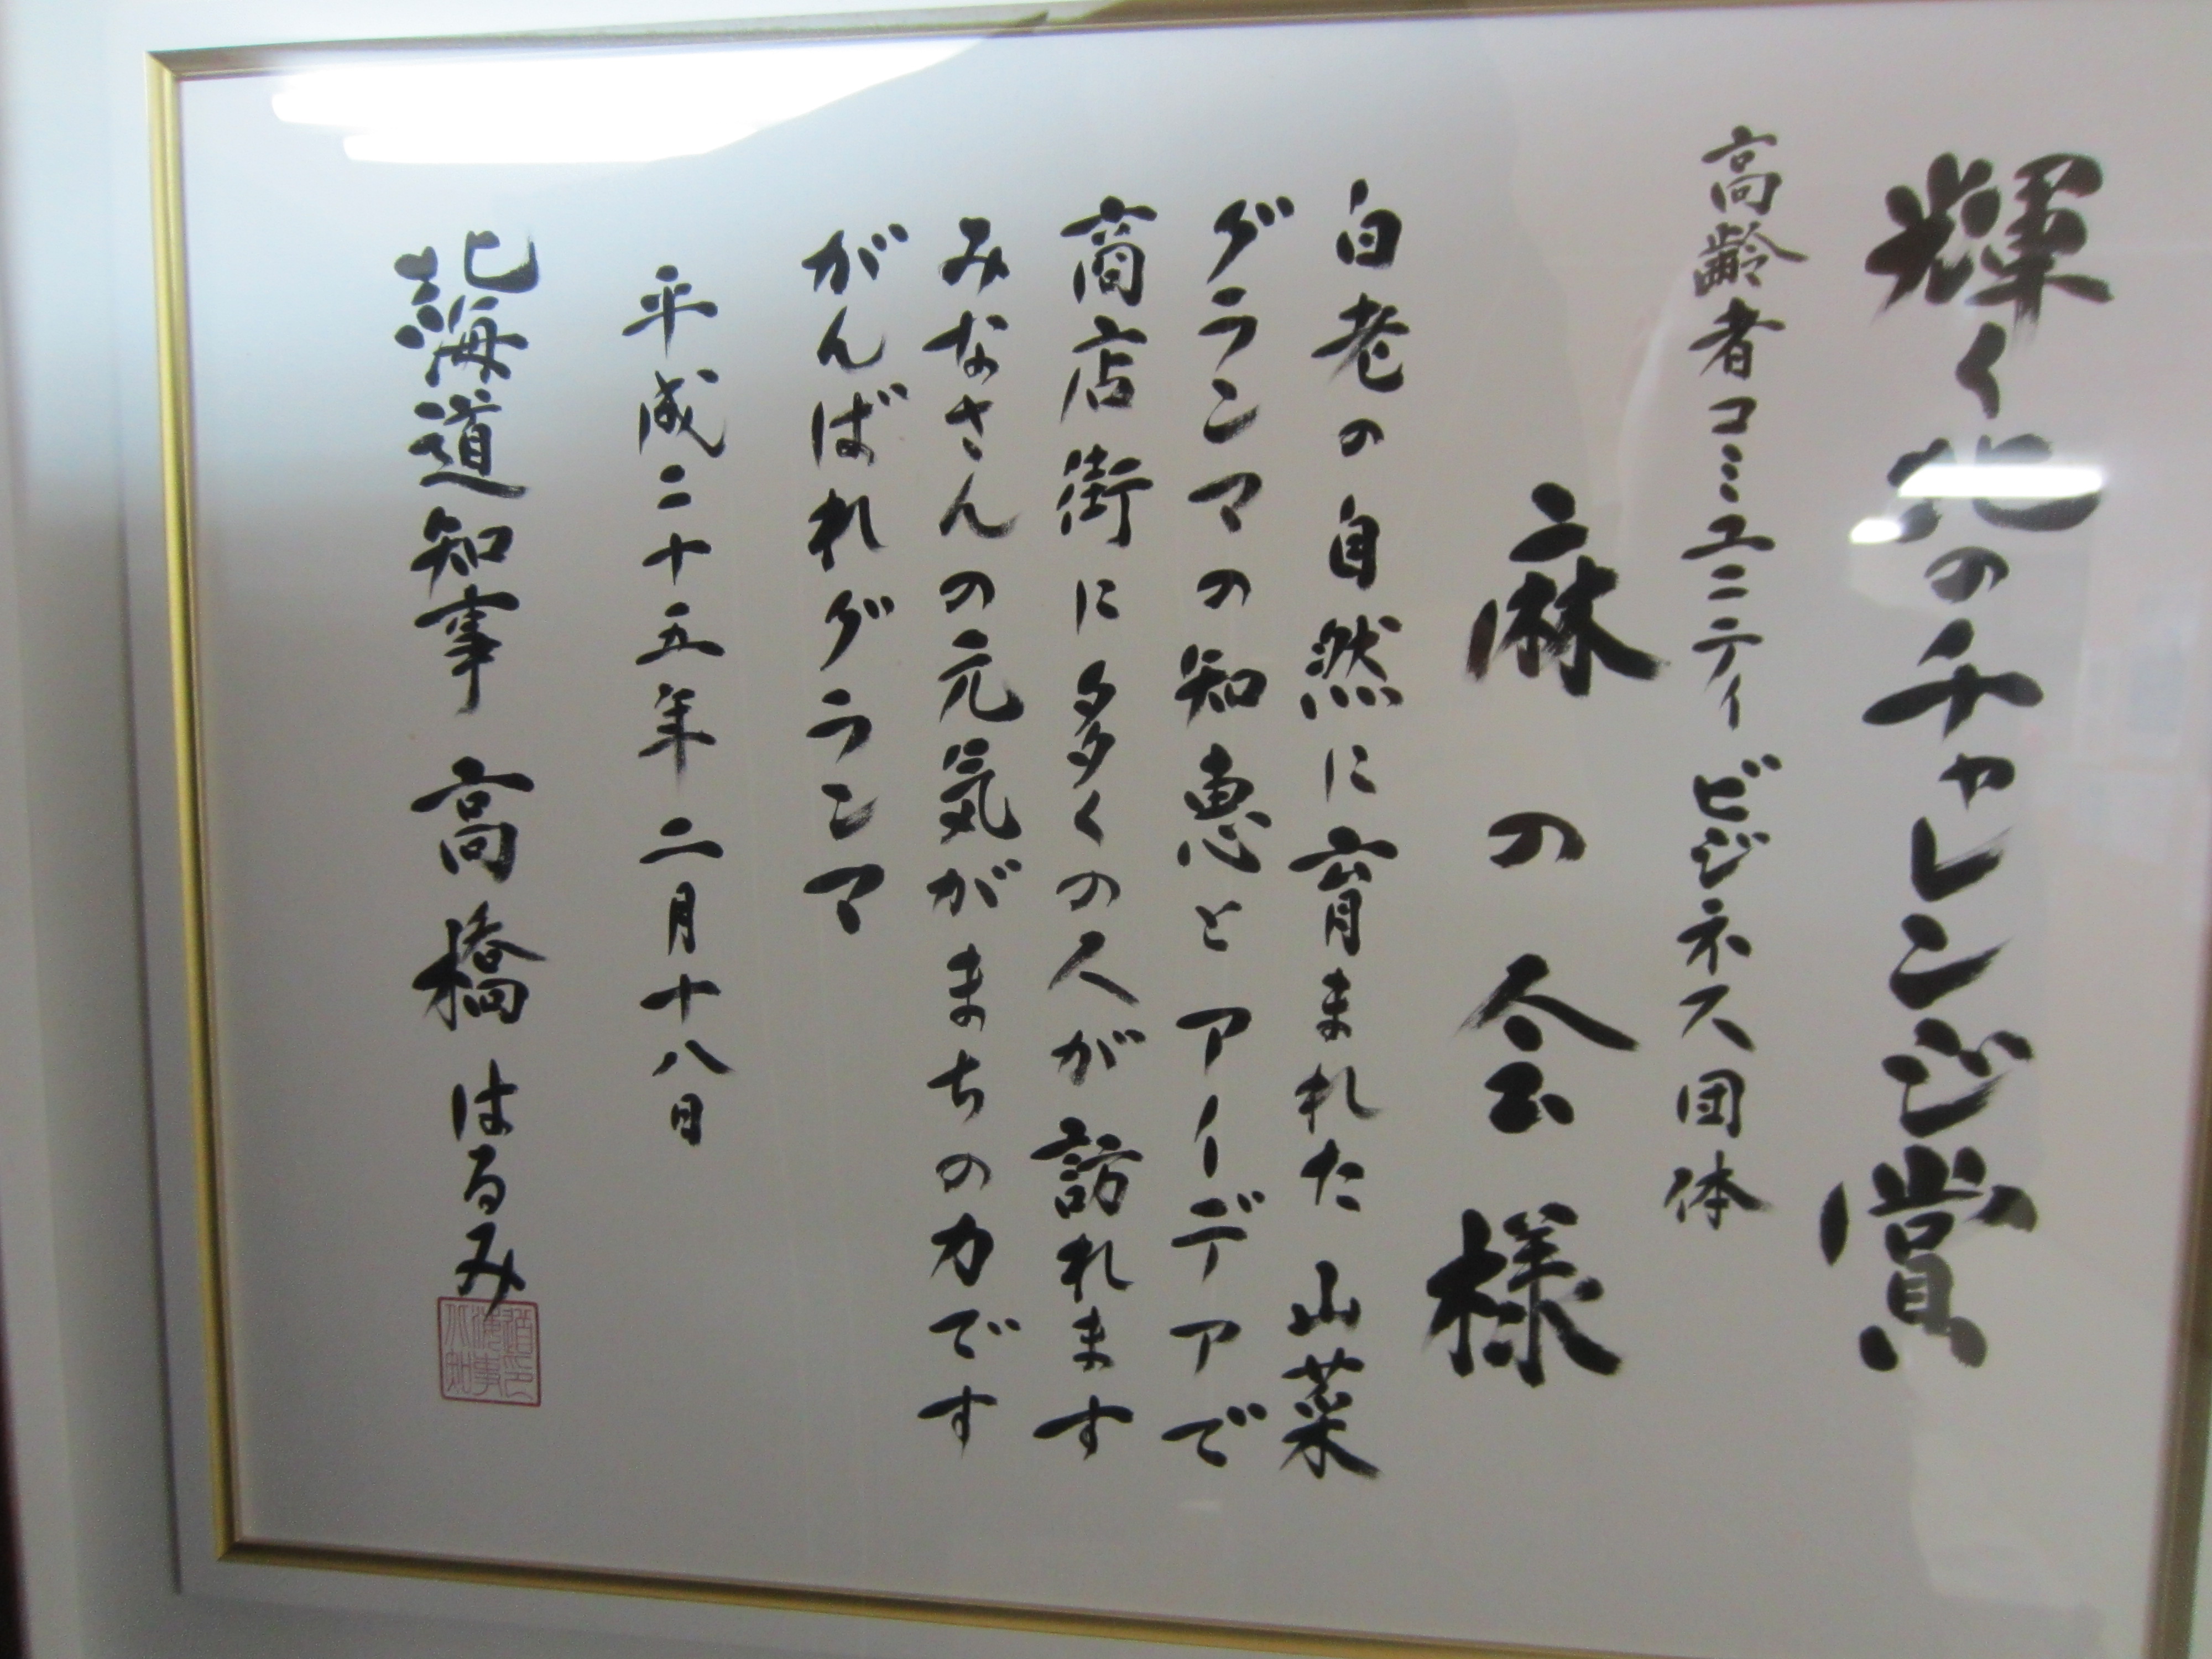 輝く北のチャレンジ賞
高齢者コミュニティビジネス団体
麻の会 様
白老の自然に育まれた山菜
グランマの知恵とアイーデアで
商店街に多くの人が訪れます
みなさんの元気がまちの力です
がんばれグランマ
平成二十五年二月十八日
北海道知事 高橋はるみ